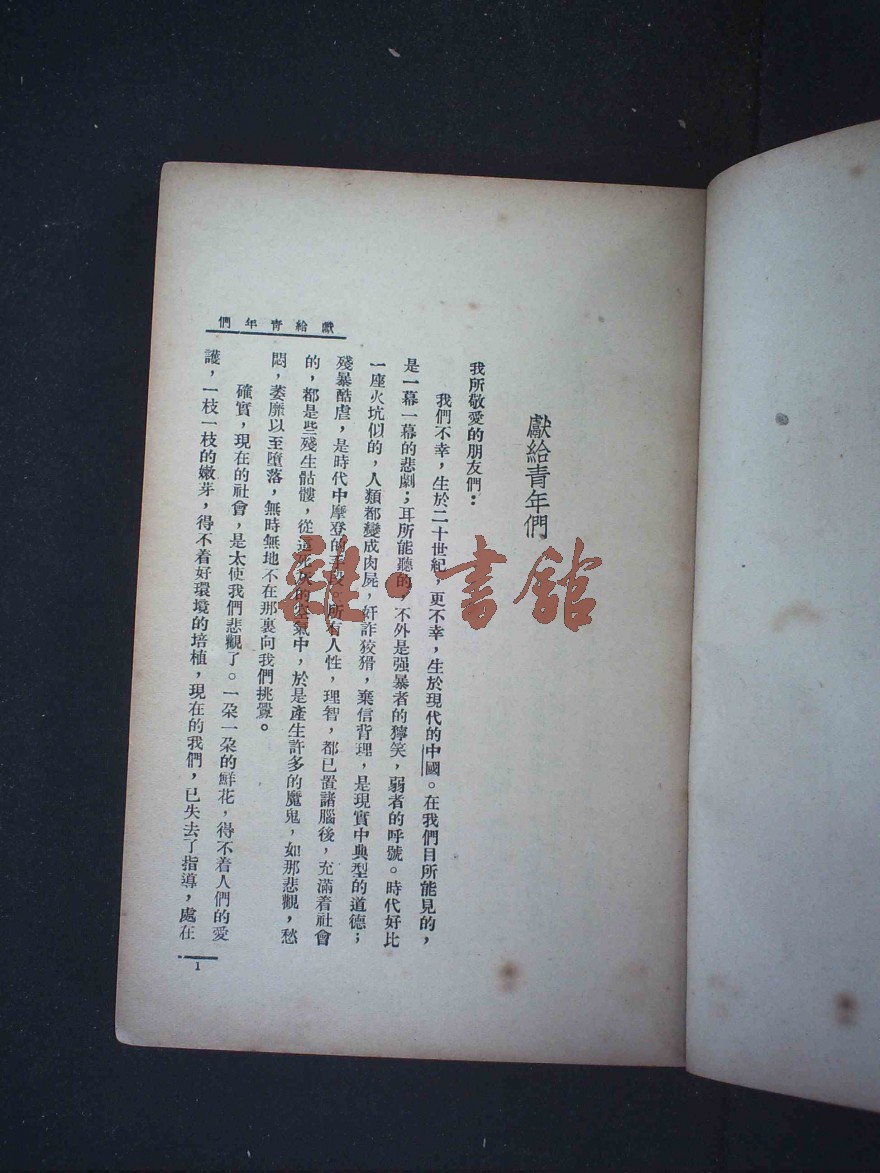 獻給青年們
我所敬愛的朋友們：
我們不幸，生於二十世紀，更不幸，生於現代的中國。在我們目所能見的，
是一幕一幕的悲劇；耳所能聽的，不外是强暴者的獰笑，弱者的呼號。時代好比
一座火坑似的，人類都變成肉屍，奸詐狡猾，棄信背理，是現實中典型的道德；
殘暴酷虐，是時代中摩登的手段。所有人性，理智，都已置諸腦後，充滿着社會
的，都是些殘生骷髏，從這死灰的空氣中，於是產生許多的魔鬼，如那悲觀，愁
悶，萎靡以至墮落，無時無地不在那裏向我們挑釁。
確實，現在的社會，是太使我們悲觀了。一朶一朶的鮮花，得不着人們的愛
護，一枝一枝的嫩芽，得不着好環境的培植，現在的我們，已失去了指導，處在
獻給青年們
1
雜·書館